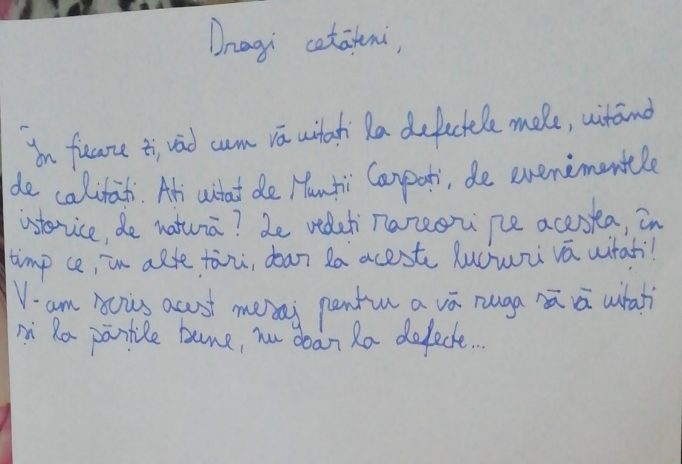 Dragi cetățeni,
În fiecare zi, văd cum vă uitați la defectele mele, uitând
de calități. Ați uitat de Munții Carpați, de evenimentele
istorice, de natură? Le vedeți rareori pe acestea, în
timp ce, în alte țări, doar la aceste lucruri vă uitați!
V-am scris acest mesaj pentru a vă ruga să vă uitați
și la părțile bune, nu doar la defecte...